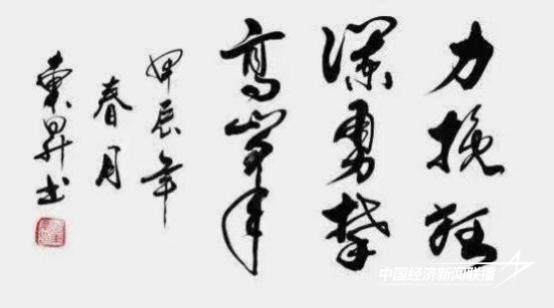 力挽狂
澜勇攀
高峯
甲辰年
春月
东昇书
中国经济新闻联播